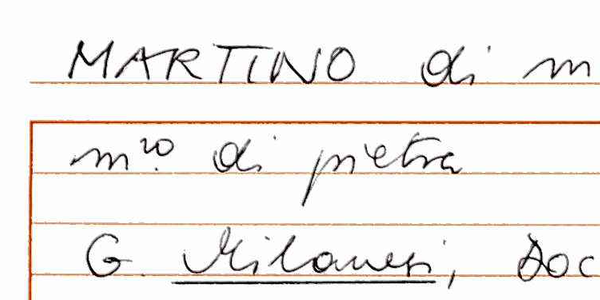 MARTINO di m
m.ro di pietra
G. Milanesi, Doc